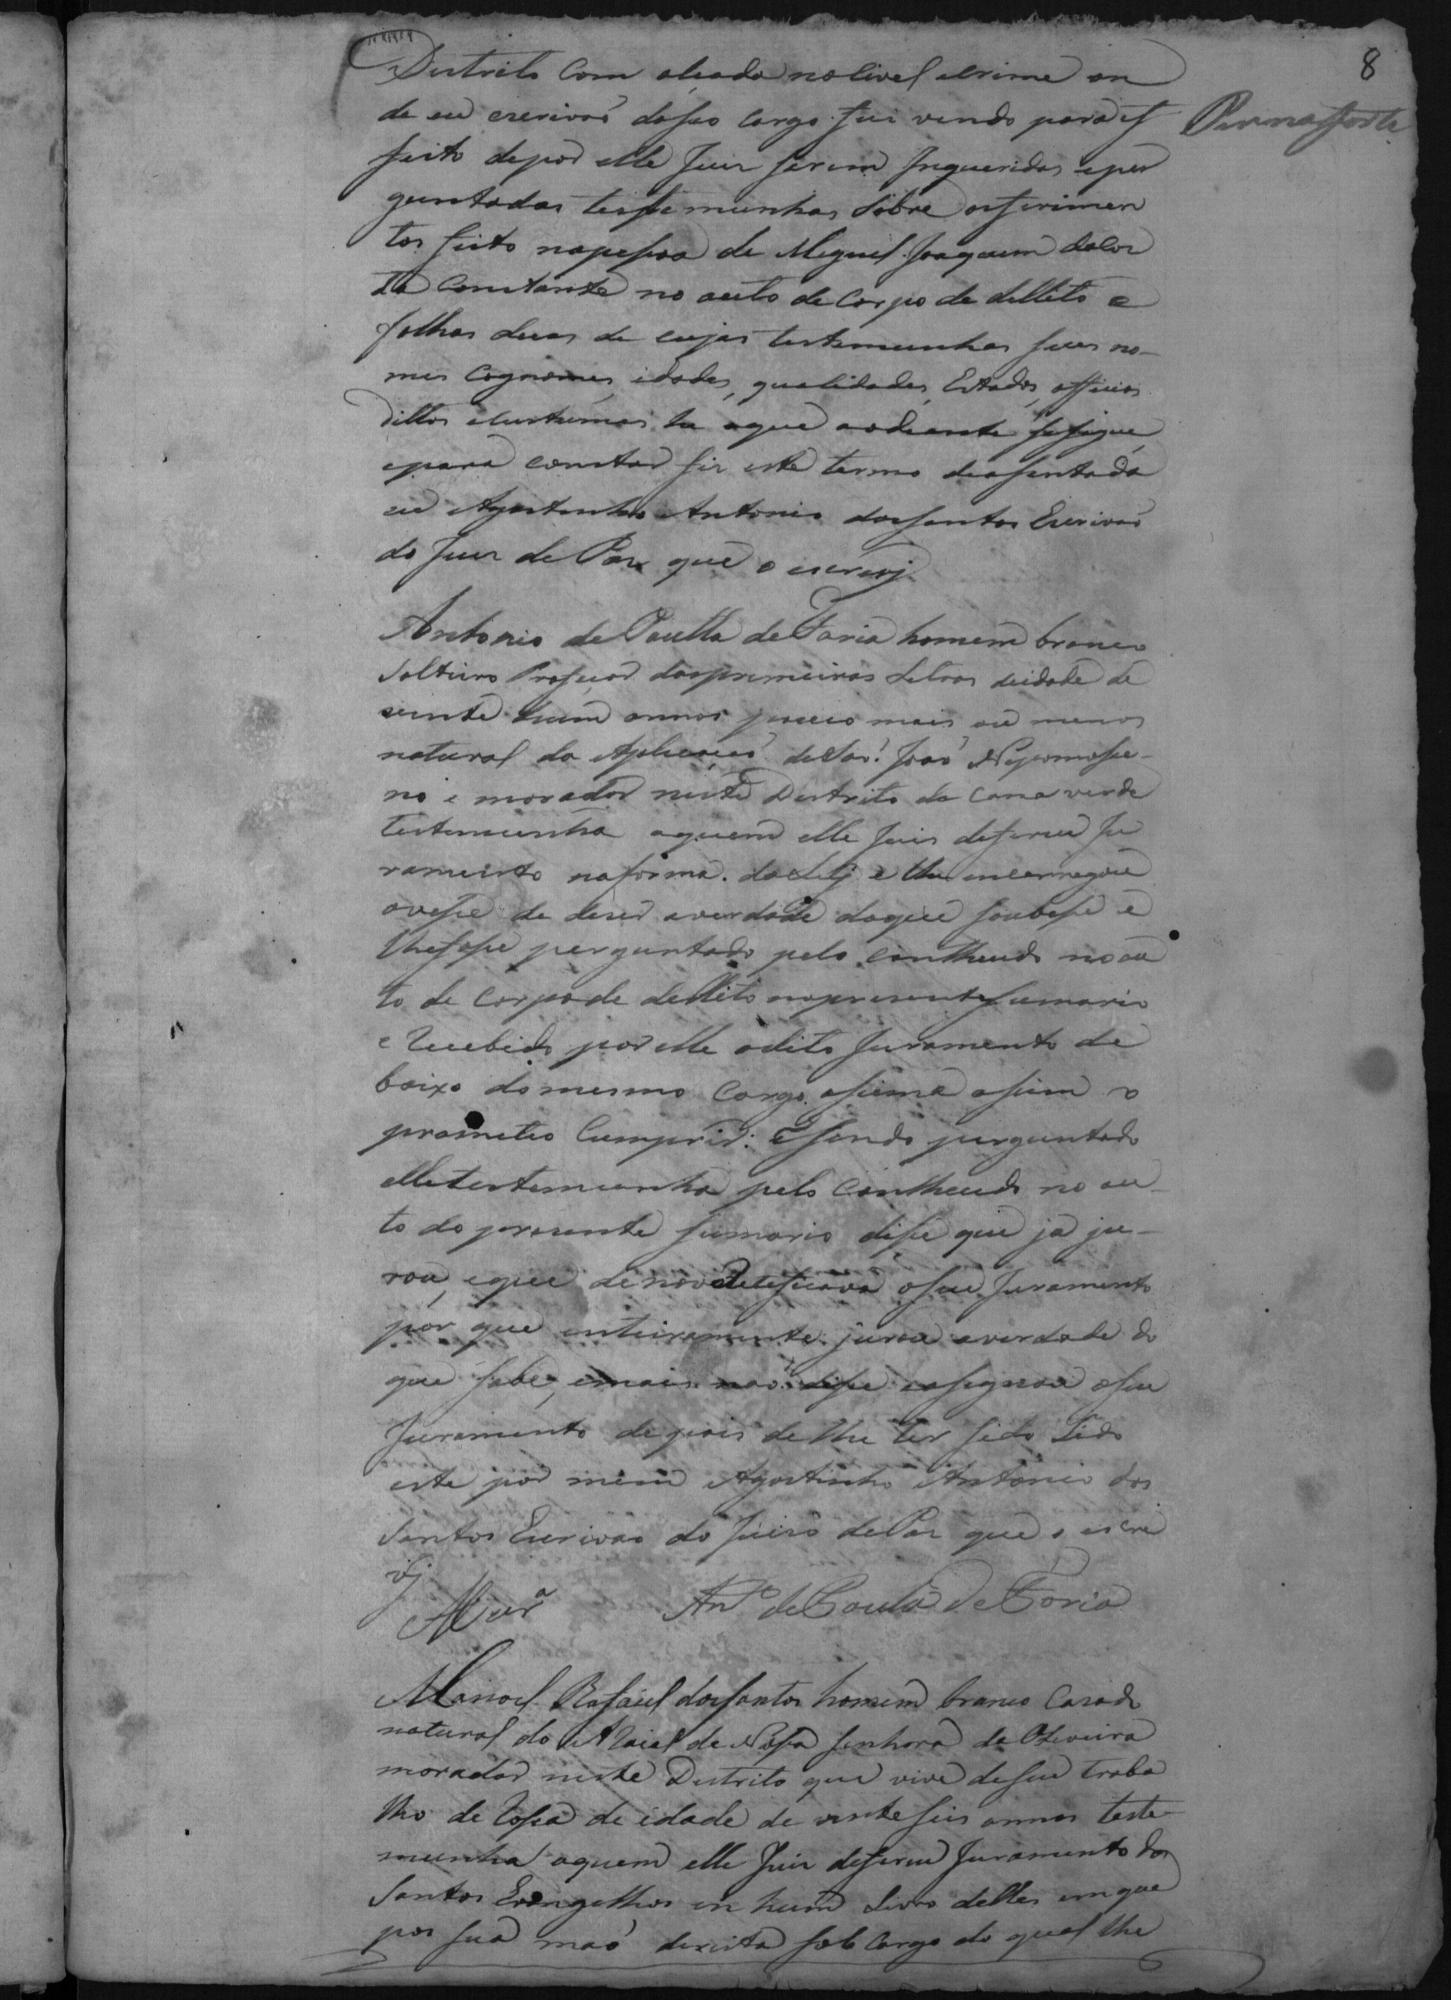 8
Pennaforte
Destrito Com alçada no Civel e crime on
de eu escrivaõ do seo Cargo fui vindo para ef
feito de por elle Juiz serem Inqueridas e per
guntadas testemunhas Sobre os ferimen
tos feito na pessoa de Miguel Joaquim da Cos
ta Constante no auto de Corpo de dellito a
folhas duas de cujas testemunhas seus no-
mes Cognomes, idades, qualidades, Estados, officios
dittos e custumes he o que ao diante se segue,
e para constar fiz este termo de assentada
eu Agostinho Antonio dos Santos Escrivaõ
do Juiz de Paz que o escrevj
Antonio de Paulla de Faria homem branco
Solteiro Professor das primeiras Letras de idade de
vinte hum annos pouco mais ou menos
natural da Aplicaçaõ de Saõ Joaõ Nepomose-
no e morador neste Destrito da Cana verde
testemunha aquem elle Juis deferiu Ju
ramento na forma da Lej e lhe encarregou
ovesse de dizer a verdade do que soubesse e
lhe fosse perguntado pelo contheudo no au
to de Corpo de dellito no presente sumario
e Recebido por elle o dito Juramento de
baixo do mesmo Cargo assima assim o
prometeo Cumprir: E sendo perguntado
elle testemunha pelo Contheudo no au-
to do presente sumario disse que ja ju-
rou, e que de novo Reteficava o seu Juramento
por que inteiramente jurou a verdade do
que sabe, e mais naõ disse e asignou o seu
Juramento depois de lhe ter sido Lido
este por mim Agostinho Antonio dos
Santos Escrivaõ do Juizo de Paz que o escre
vj
An.to de Paula de Faria
Manoel Rafaiel dos Santos homem branco Casado
natural do ARaial de Nossa Senhora da Oliveira
morador neste Destrito que vive de seu traba
lho de Rossa de idade de vinte seis annos teste-
munha aquem elle Juiz deferiu Juramento dos
Santos Evangelhos em hum Livro delles em que
pos sua maõ direita sob Cargo do qual lhe